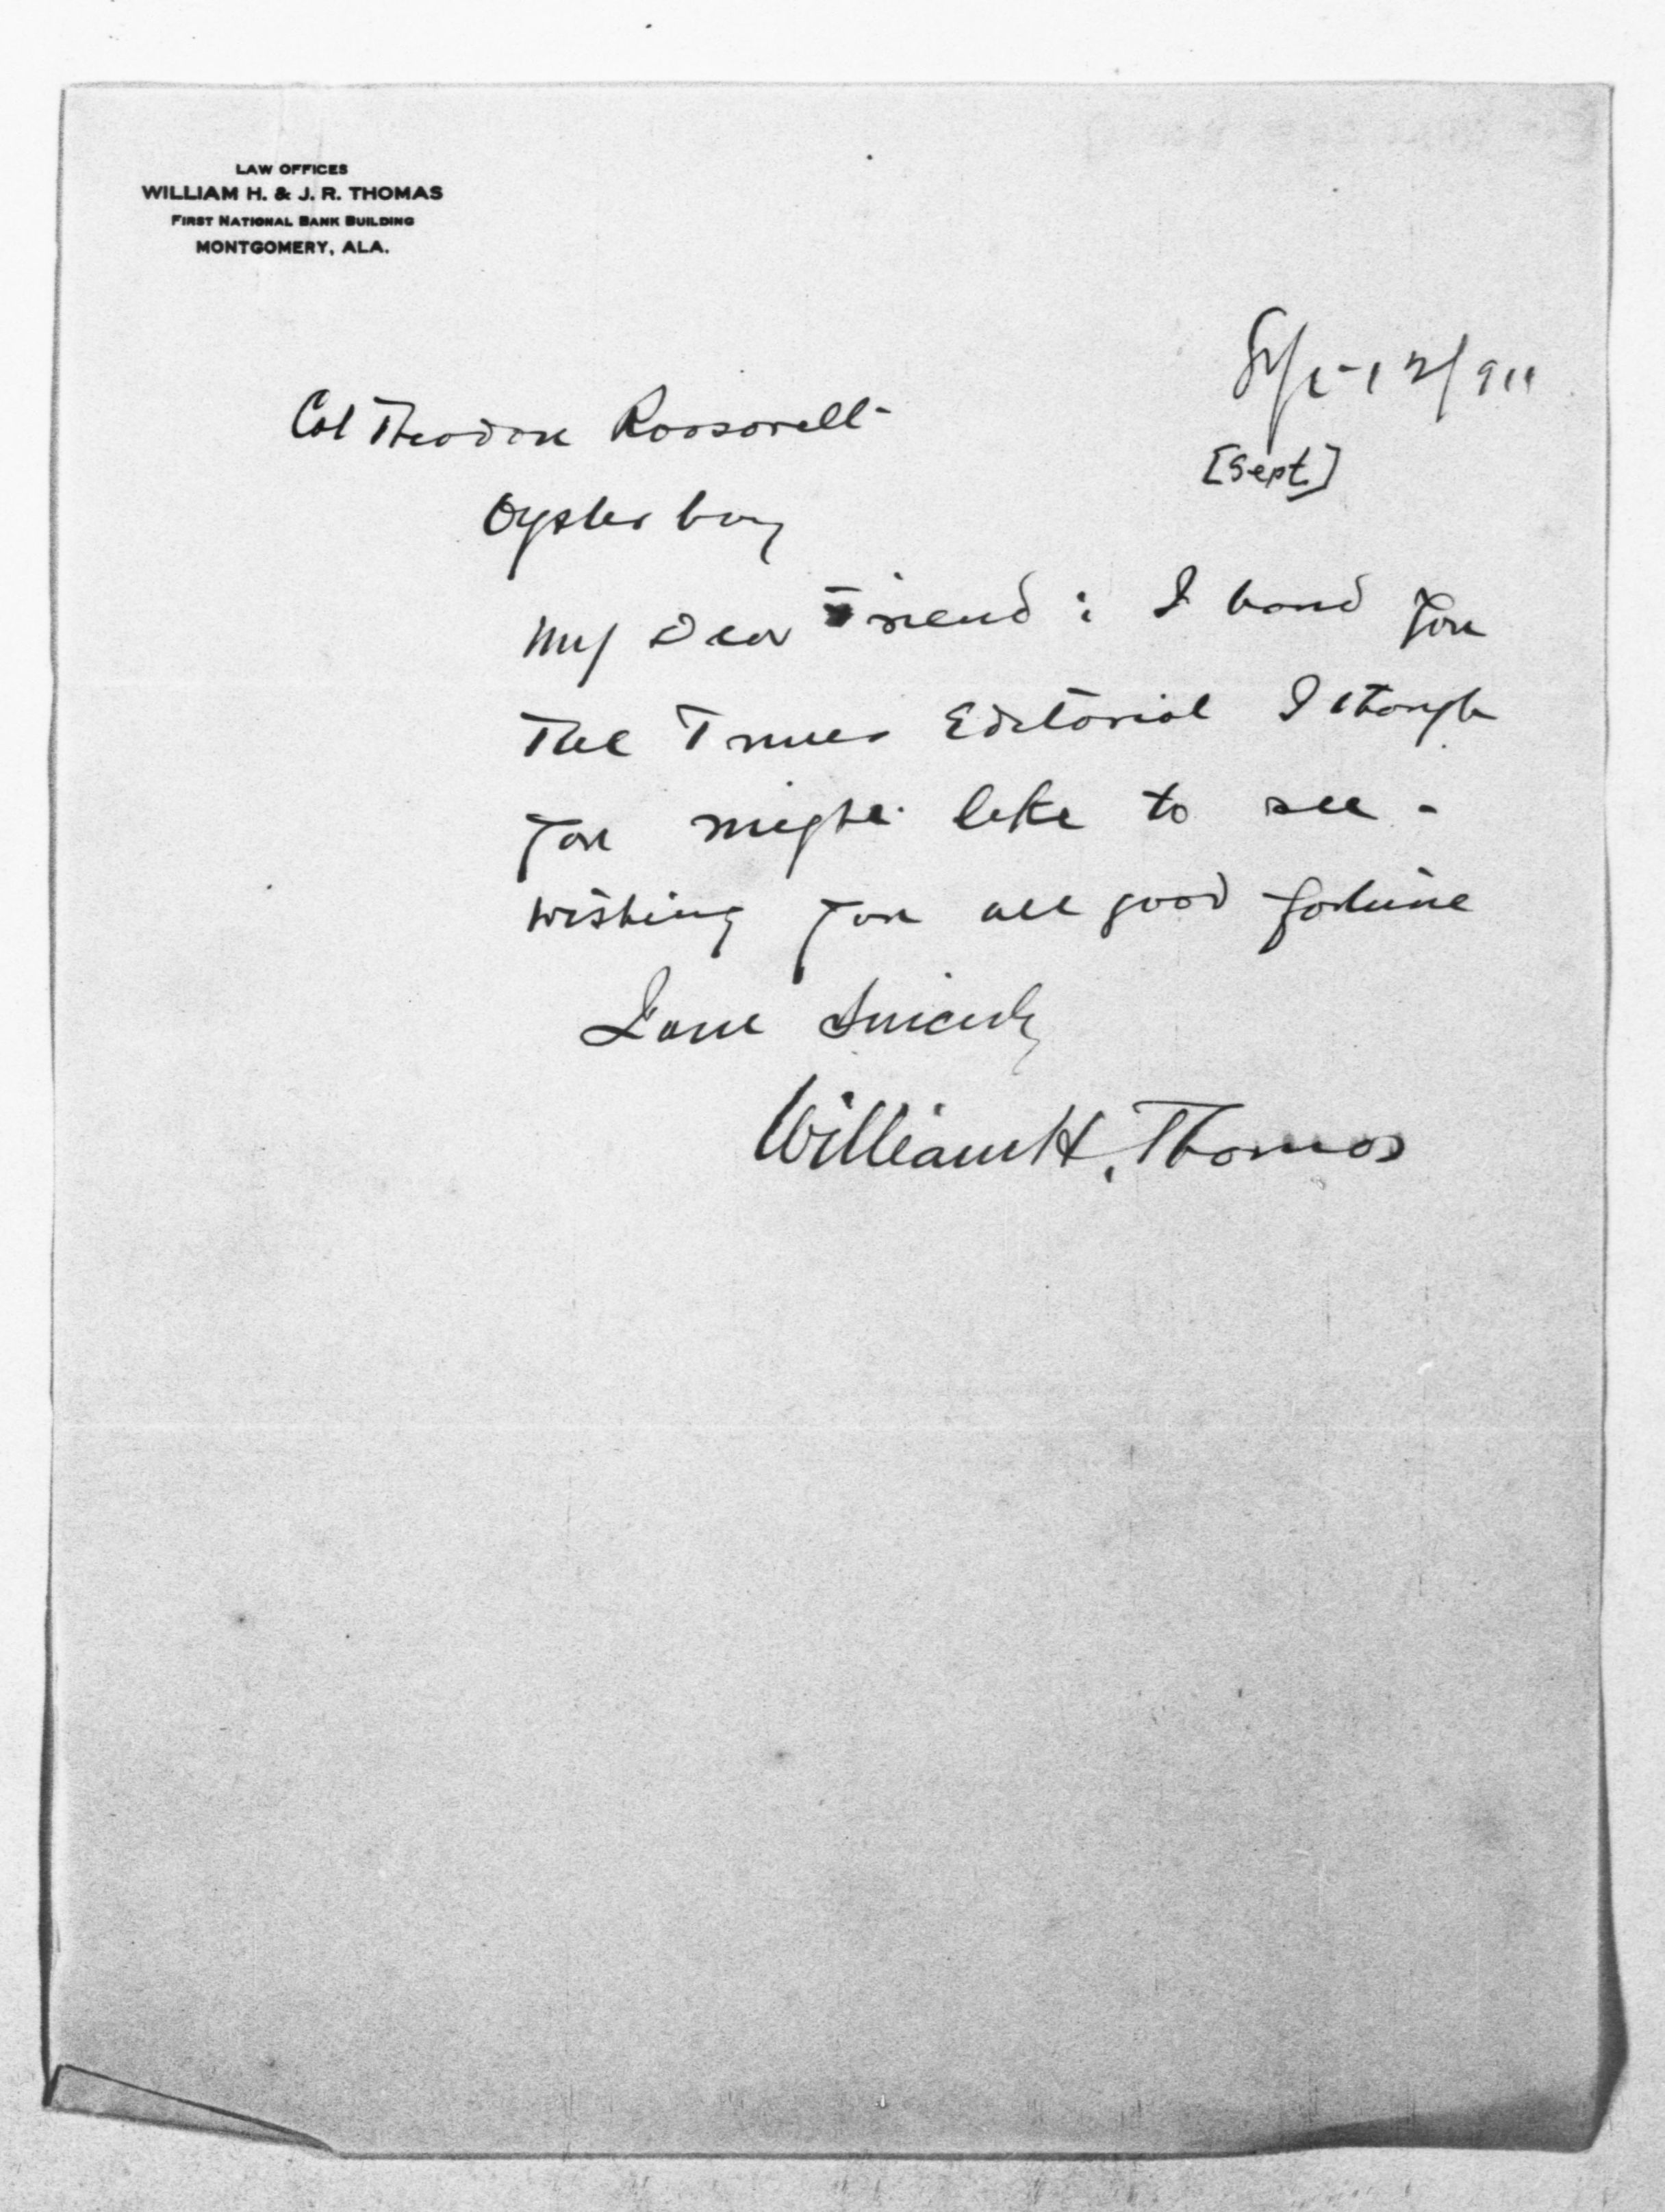 LAW OFFICES
WILLIAM H. & J. R. THOMAS
FIRST NATIONAL BANK BUILDING
MONTGOMERY, ALA.
Sept 12/911
[Sept]
Col Theodore Roosevelt
Oyster bay
My Dear Friend: I hand you
The Times Editorial I though
you might like to see -
Wishing you all good fortune
I am Sincerely
William H. Thomas